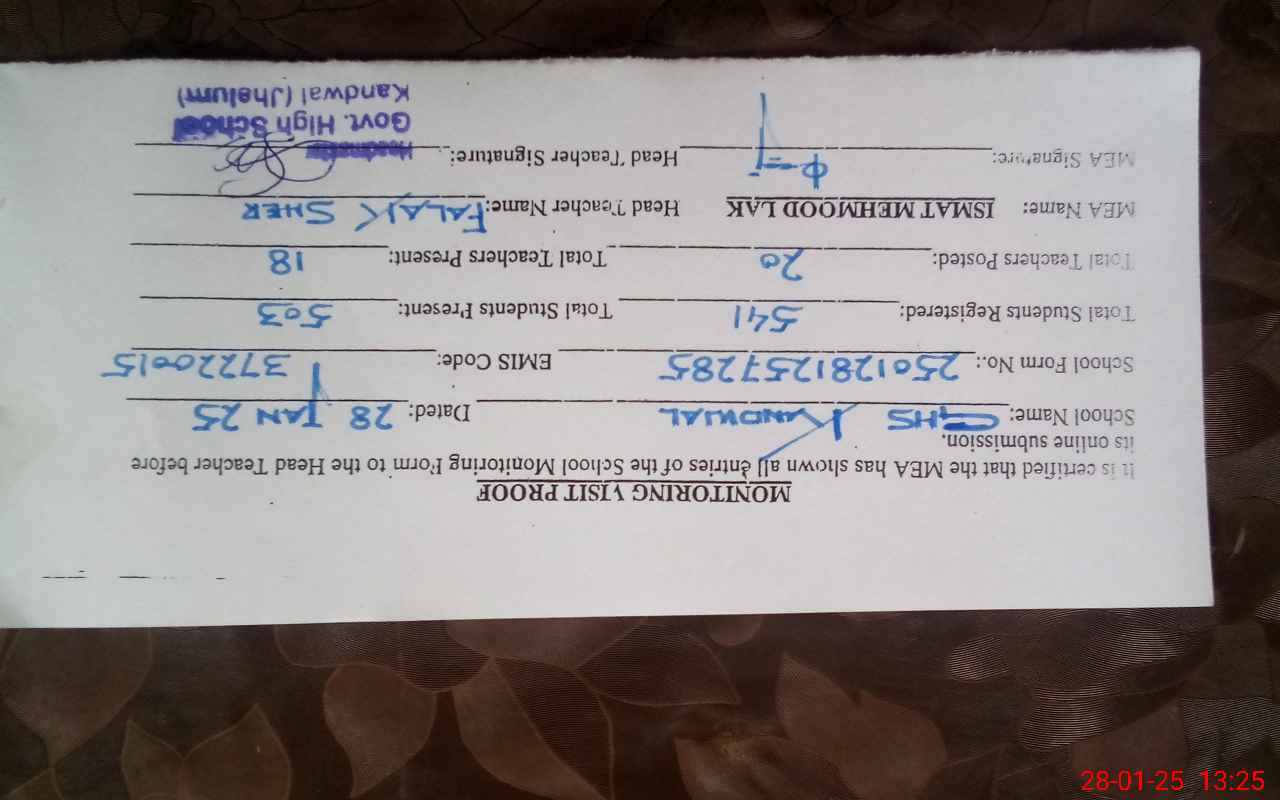 MONITORING VISIT PROOF
It is certified that the MEA has shown all entries of the School Monitoring Form to the Head Teacher before
its online submission.
School Name: GHS KANDWAL Dated: 28 JAN 25
School Form No.: 2501281257285 EMIS Code: 37220015
Total Students Registered: 541 Total Students Present: 503
Total Teachers Posted: 20 Total Teachers Present: 18
MEA Name: ISMAT MEHMOOD LAK Head Teacher Name: FALAK SHER
MEA Signature: Head Teacher Signature:
Headmaster
Govt. High School
Kandwal (Jhelum)
28-01-25 13:25